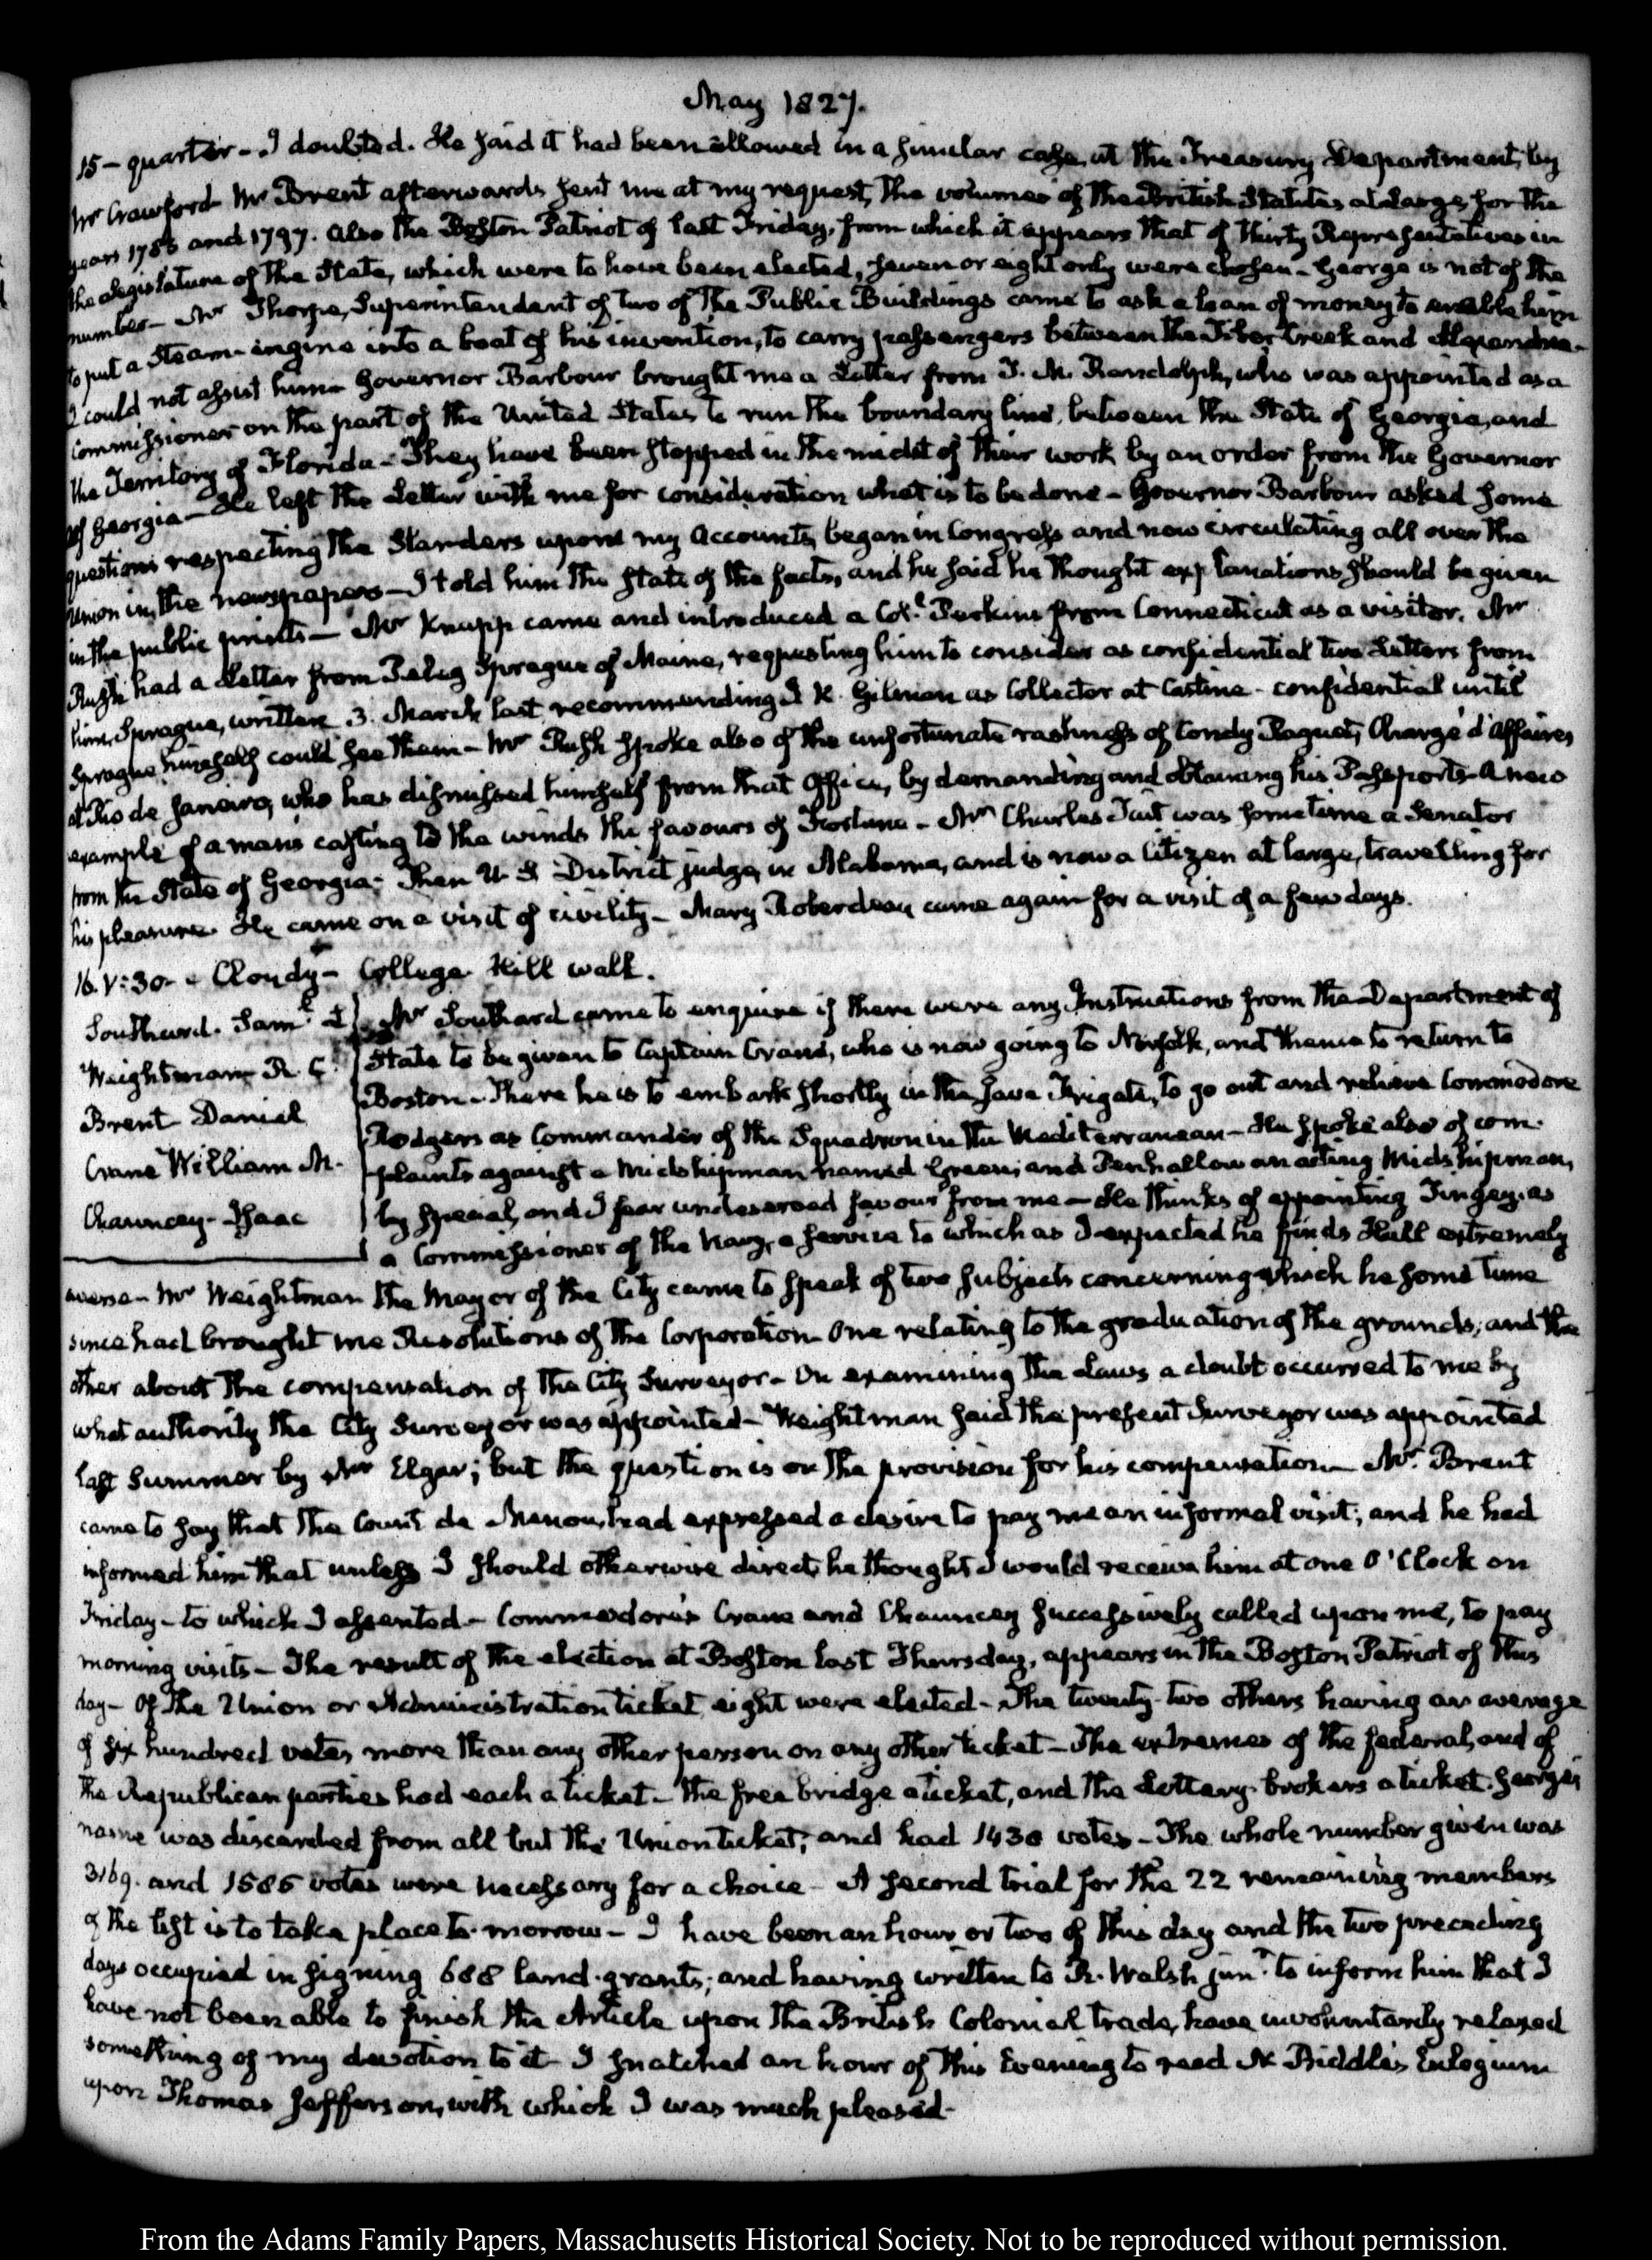 May 1827.
15 - quarter - I doubted. He said it had been allowed in a similar case, at the Treasury Department, by
Mr Crawford Mr Brent afterwards sent me at my request, the volumes of the British Statutes at large, for the
years 1786 and 1797. Also the Boston Patriot of last Friday, from which it appears that of thirty Representatives in
the Legislature of the State, which were to have been elected, seven or eight only were chosen - George is not of the
number - Mr Thorpe, Superintendant of two of the Public Buildings came to ask a loan of money to enable him
to put a Steam-engine into a boat of his invention, to carry passengers between the Tiber Creek and Alexandria -
I could not assist him - Governor Barbour brought me a Letter from T. M. Randolph, who was appointed as a
Commissioner on the part of the United States to run the boundary line, between the State of Georgia, and
the Territory of Florida - They have been stopped in the midst of their work by an order from the Governor
of Georgia - He left the Letter with me for consideration what is to be done - Governor Barbour asked some
questions respecting the Slanders upon my Accounts, began in Congress and now circulating all over the
Union in the newspapers - I told him the state of the facts, and he said he thought explanations should be given
in the public prints - Mr Knapp came and introduced a Col. Perkins from Connecticut as a visitor. Mr
Rush had a Letter from Peleg Sprague of Maine, requesting him to consider as confidential two Letters from
him, Sprague, written 3. March last, recommending J K. Gilman as Collector at Castine - confidential until
Sprague himself could see them - Mr Rush spoke also of the unfortunate rashness of Condy Raguet, Chargé d'Affaires
at Rio de Janeiro, who has dismissed himself from that Office, by demanding and obtaining his Passports - A new
example of a man's casting to the winds the favours of Fortune - Mr Charles Tait was sometime a Senator
from the State of Georgia; then U. S. District judge, in Alabama, and is now a Citizen at large, travelling for
his pleasure. He came on a visit of civility - Mary Roberdeau came again for a visit of a few days.
16. V:30. Cloudy - College Hill walk.
Southard. Saml L
Weightman R. C.
Brent Daniel
Crane William M.
Chauncey - Isaac
Mr Southard came to enquire if there were any Instructions from the Department of
State to be given to Captain Crane, who is now going to Norfolk, and thence to return to
Boston - There he is to embark shortly in the Java Frigate, to go out and relieve Commodore
Rodgers as Commander of the Squadron in the Mediterranean - He spoke also of com-
plaints against a Midshipman named Green; and Penhallow an acting Midshipman,
by special, and I fear undeserved favour from me - He thinks of appointing Tingey, as
a Commissioner of the Navy, a service to which as I expected he finds Hull extremely
averse - Mr Weightman the Mayor of the City came to speak of two subjects concerning which he some time
since had brought me Resolutions of the Corporation One relating to the graduation of the grounds; and the
other about the compensation of the City Surveyor - On examining the Laws a doubt occurred to me by
what authority the City Surveyor was appointed - Weightman said the present Surveyor was appointed
last Summer by Mr Elgar; but the question is on the provision for his compensation - Mr. Brent
came to say that the Count de Menou, had expressed a desire to pay me an informal visit; and he had
informed him that unless I should otherwise direct, he thought I would receive him at one O'Clock on
Friday - to which I assented - Commodores Crane and Chauncey successively called upon me, to pay
morning visits - The result of the election at Boston last Thursday, appears in the Boston Patriot of this
day - Of the Union or Administration ticket, eight were elected - The twenty-two others having an average
of six hundred votes, more than any other person on any other ticket - The extremes of the federal, and of
the Republican parties had each a ticket - the free bridge a ticket, and the Lottery-brokers a ticket. George's
name was discarded from all but the Union ticket; and had 1430 votes - The whole number given was
3169. and 1585 votes were necessary for a choice - A second trial for the 22 remaining members
of the list is to take place to-morrow - I have been an hour or two of this day and the two preceding
days occupied in signing 688 land-grants; and having written to R. Walsh junr. to inform him that I
have not been able to finish the Article upon the British Colonial trade, have involuntarily relaxed
something of my devotion to it - I snatched an hour of this Evening to read N. Biddle's Eulogium
upon Thomas Jefferson, with which I was much pleased -
From the Adams Family Papers, Massachusetts Historical Society. Not to be reproduced without permission.